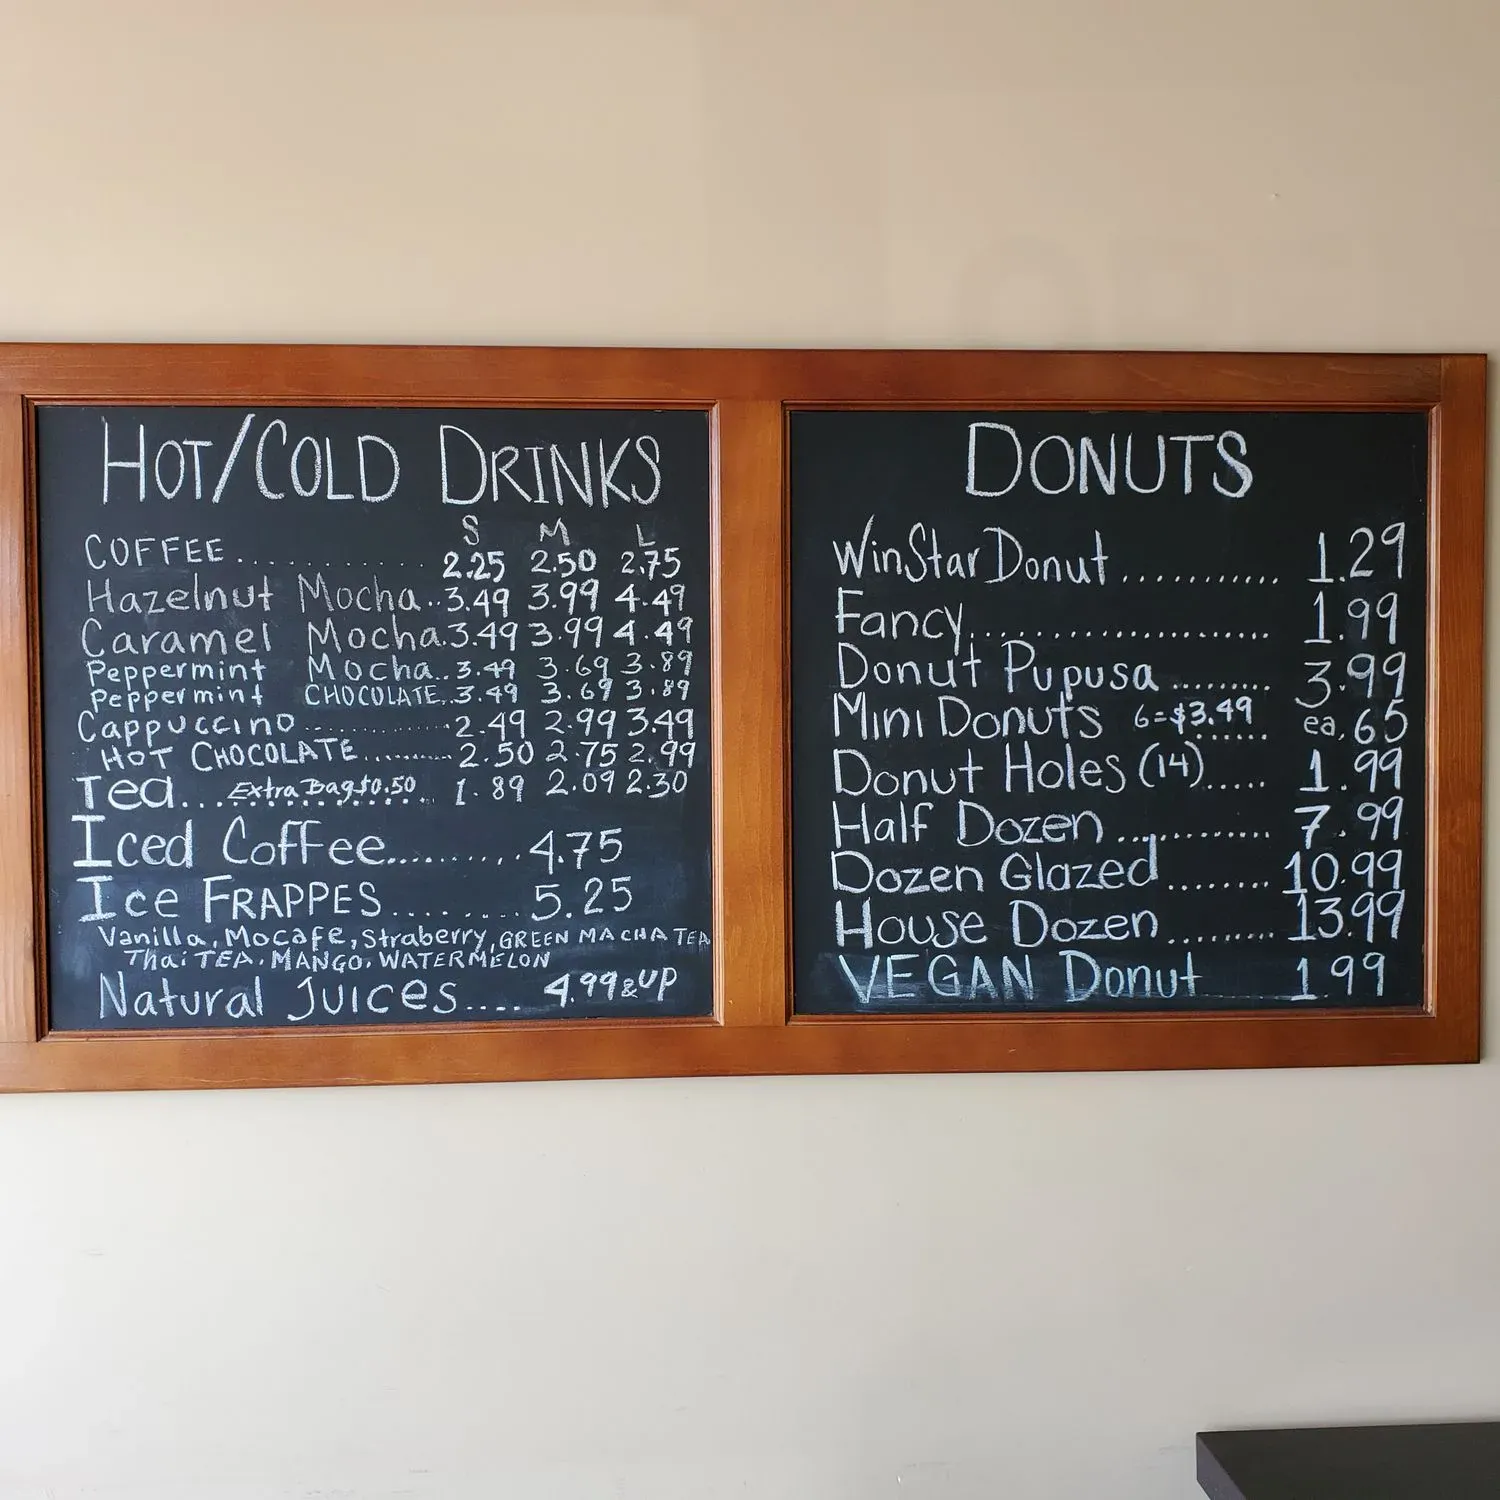 HOT/COLD DRINKS
S M L
COFFEE............. 2.25 2.50 2.75
Hazelnut Mocha..3.49 3.99 4.49
Caramel Mocha.3.49 3.99 4.49
Peppermint Mocha..3.49 3.69 3.89
Peppermint CHOCOLATE..3.49 3.69 3.89
Cappuccino..............2.49 2.99 3.49
HOT CHOCOLATE..........2.50 2.75 2.99
Tea... Extra Bag $0.50 1.89 2.09 2.30
Iced Coffee.........4.75
Ice FRAPPES.........5.25
Vanilla, Mocafe, Straberry, GREEN MACHA TEA
Thai TEA, MANGO, WATERMELON
Natural JUICES.... 4.99 & UP
DONUTS
WinStar Donut............ 1.29
Fancy...................... 1.99
Donut Pupusa......... 3.99
Mini Donuts 6=$3.49...... ea, 65
Donut Holes (14)..... 1.99
Half Dozen............ 7.99
Dozen Glazed........ 10.99
House Dozen........ 13.99
VEGAN Donut 1.99